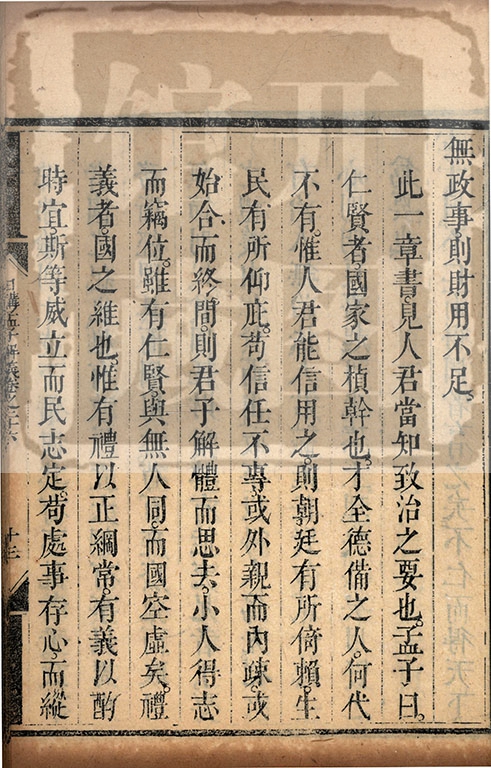 無政事。則財用不足。
此一章書。見人君當知致治之要也。孟子曰。
仁賢者。國家之楨幹也。才全德備之人。何代
不有。惟人君能信用之。則朝廷有所倚賴。生
民有所仰庇。苟信任不專。或外親而內疎。或
始合而終間。則君子解體而思去。小人得志
而竊位。雖有仁賢。與無人同。而國空虛矣。禮
義者。國之維也。惟有禮以正綱常。有義以酌
時宜。斯等威立而民志定。苟處事存心。而縱
日講孟子解義卷之二十六
十三